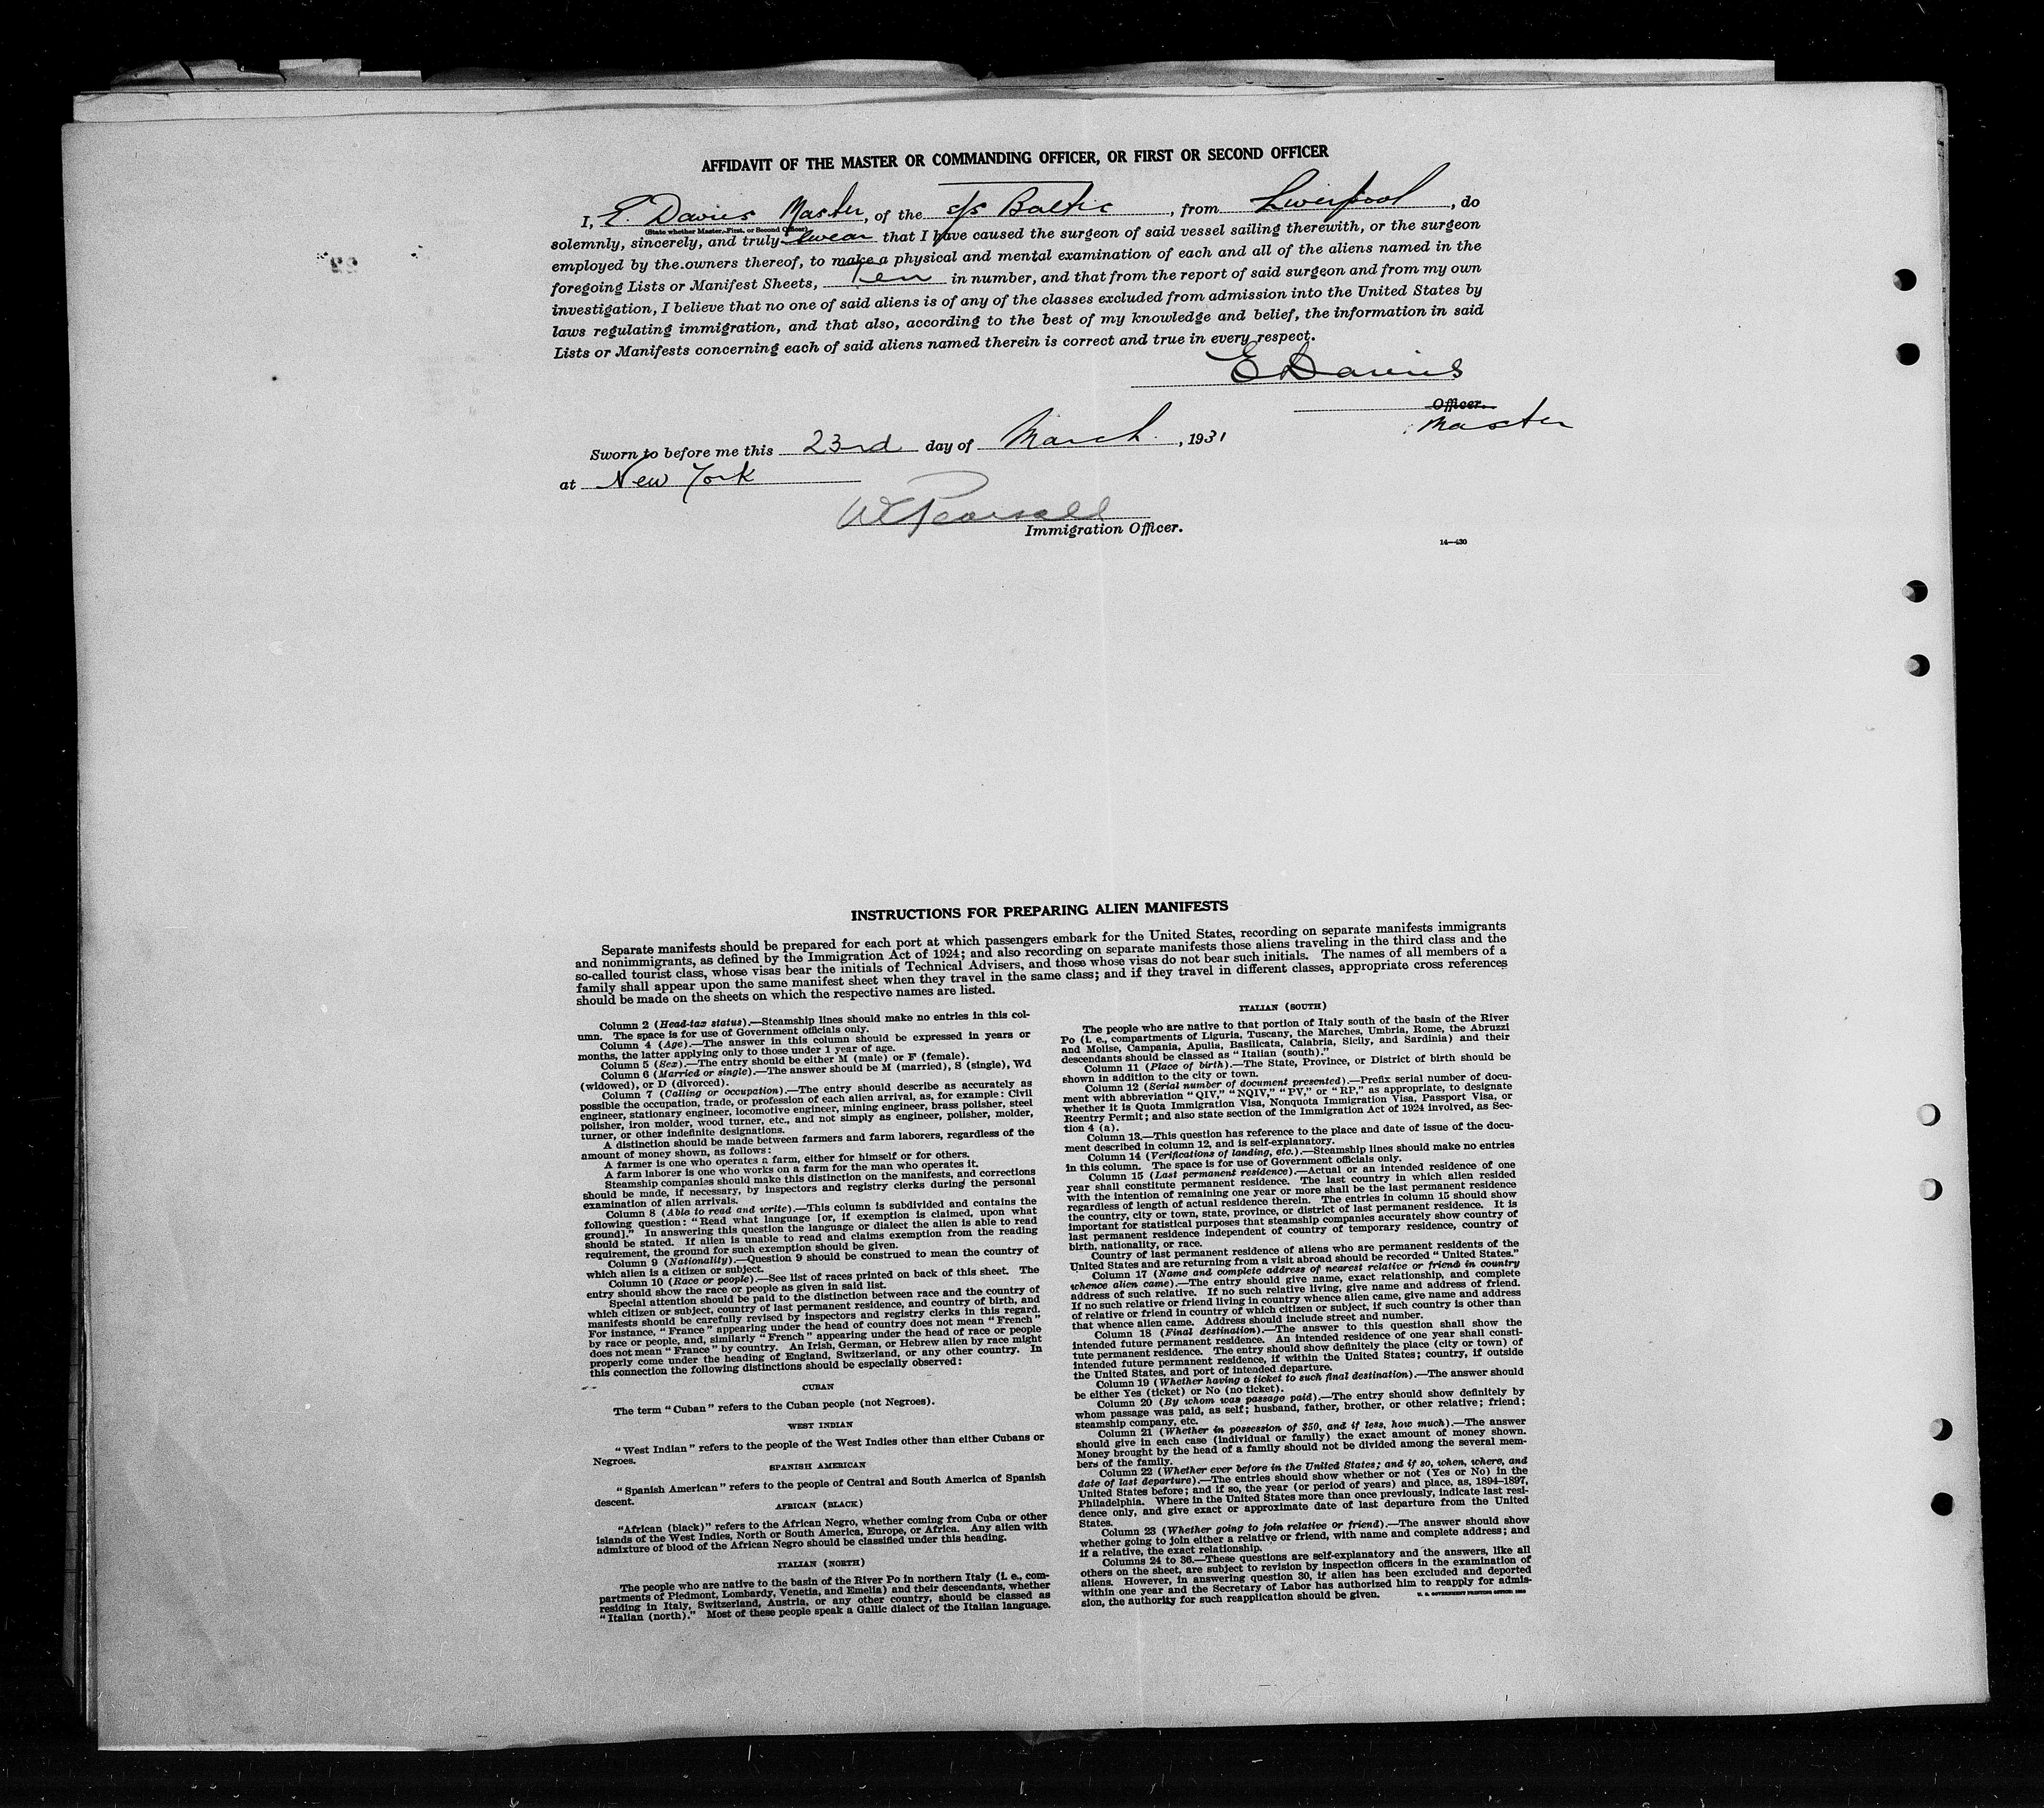 AFFIDAVIT OF THE MASTER OR COMMANDING OFFICER, OR FIRST OR SECOND OFFICER
I, E. Davies Master, of the s/s Baltic, from Liverpool, do
(State whether Master, First, or Second Officer)
solemnly, sincerely, and truly swear that I have caused the surgeon of said vessel sailing therewith, or the surgeon
employed by the owners thereof, to make a physical and mental examination of each and all of the aliens named in the
foregoing Lists or Manifest Sheets, Ten in number, and that from the report of said surgeon and from my own
investigation, I believe that no one of said aliens is of any of the classes excluded from admission into the United States by
laws regulating immigration, and that also, according to the best of my knowledge and belief, the information in said
Lists or Manifests concerning each of said aliens named therein is correct and true in every respect.
E Davies
Officer.
Master
Sworn to before me this 23rd day of March, 1931
at New York
W Pearsall
Immigration Officer.
14—430
INSTRUCTIONS FOR PREPARING ALIEN MANIFESTS
Separate manifests should be prepared for each port at which passengers embark for the United States, recording on separate manifests immigrants
and nonimmigrants, as defined by the Immigration Act of 1924; and also recording on separate manifests those aliens traveling in the third class and the
so-called tourist class, whose visas bear the initials of Technical Advisers, and those whose visas do not bear such initials. The names of all members of a
family shall appear upon the same manifest sheet when they travel in the same class; and if they travel in different classes, appropriate cross references
should be made on the sheets on which the respective names are listed.
Column 2 (Head-tax status).—Steamship lines should make no entries in this col-
umn. The space is for use of Government officials only.
Column 4 (Age).—The answer in this column should be expressed in years or
months, the latter applying only to those under 1 year of age.
Column 5 (Sex).—The entry should be either M (male) or F (female).
Column 6 (Married or single).—The answer should be M (married), S (single), Wd
(widowed), or D (divorced).
Column 7 (Calling or occupation).—The entry should describe as accurately as
possible the occupation, trade, or profession of each alien arrival, as, for example: Civil
engineer, stationary engineer, locomotive engineer, mining engineer, brass polisher, steel
polisher, iron molder, wood turner, etc., and not simply as engineer, polisher, molder,
turner, or other indefinite designations.
A distinction should be made between farmers and farm laborers, regardless of the
amount of money shown, as follows:
A farmer is one who operates a farm, either for himself or for others.
A farm laborer is one who works on a farm for the man who operates it.
Steamship companies should make this distinction on the manifests, and corrections
should be made, if necessary, by inspectors and registry clerks during the personal
examination of alien arrivals.
Column 8 (Able to read and write).—This column is subdivided and contains the
following question: "Read what language [or, if exemption is claimed, upon what
ground]." In answering this question the language or dialect the alien is able to read
should be stated. If alien is unable to read and claims exemption from the reading
requirement, the ground for such exemption should be given.
Column 9 (Nationality).—Question 9 should be construed to mean the country of
which alien is a citizen or subject.
Column 10 (Race or people).—See list of races printed on back of this sheet. The
entry should show the race or people as given in said list.
Special attention should be paid to the distinction between race and the country of
which citizen or subject, country of last permanent residence, and country of birth, and
manifests should be carefully revised by inspectors and registry clerks in this regard.
For instance, "France" appearing under the head of country does not mean "French"
by race or people, and, similarly "French" appearing under the head of race or people
does not mean "France" by country. An Irish, German, or Hebrew alien by race might
properly come under the heading of England, Switzerland, or any other country. In
this connection the following distinctions should be especially observed:
CUBAN
The term "Cuban" refers to the Cuban people (not Negroes).
WEST INDIAN
"West Indian" refers to the people of the West Indies other than either Cubans or
Negroes.
SPANISH AMERICAN
"Spanish American" refers to the people of Central and South America of Spanish
descent.
AFRICAN (BLACK)
"African (black)" refers to the African Negro, whether coming from Cuba or other
islands of the West Indies, North or South America, Europe, or Africa. Any alien with
admixture of blood of the African Negro should be classified under this heading.
ITALIAN (NORTH)
The people who are native to the basin of the River Po in northern Italy (i. e., com-
partments of Piedmont, Lombardy, Venetia, and Emelia) and their descendants, whether
residing in Italy, Switzerland, Austria, or any other country, should be classed as
"Italian (north)." Most of these people speak a Gallic dialect of the Italian language.
ITALIAN (SOUTH)
The people who are native to that portion of Italy south of the basin of the River
Po (i. e., compartments of Liguria, Tuscany, the Marches, Umbria, Rome, the Abruzzi
and Molise, Campania, Apulia, Basilicata, Calabria, Sicily, and Sardinia) and their
descendants should be classed as "Italian (south)."
Column 11 (Place of birth).—The State, Province, or District of birth should be
shown in addition to the city or town.
Column 12 (Serial number of document presented).—Prefix serial number of docu-
ment with abbreviation "QIV," "NQIV," "PV," or "RP," as appropriate, to designate
whether it is Quota Immigration Visa, Nonquota Immigration Visa, Passport Visa, or
Reentry Permit; and also state section of the Immigration Act of 1924 involved, as Sec-
tion 4 (a).
Column 13.—This question has reference to the place and date of issue of the docu-
ment described in column 12, and is self-explanatory.
Column 14 (Verifications of landing, etc.).—Steamship lines should make no entries
in this column. The space is for use of Government officials only.
Column 15 (Last permanent residence).—Actual or an intended residence of one
year shall constitute permanent residence. The last country in which alien resided
with the intention of remaining one year or more shall be the last permanent residence
regardless of length of actual residence therein. The entries in column 15 should show
the country, city or town, state, province, or district of last permanent residence. It is
important for statistical purposes that steamship companies accurately show country of
last permanent residence independent of country of temporary residence, country of
birth, nationality, or race.
Country of last permanent residence of aliens who are permanent residents of the
United States and are returning from a visit abroad should be recorded "United States."
Column 17 (Name and complete address of nearest relative or friend in country
whence alien came).—The entry should give name, exact relationship, and complete
address of such relative. If no such relative living, give name and address of friend.
If no such relative or friend living in country whence alien came, give name and address
of relative or friend in country of which citizen or subject, if such country is other than
that whence alien came. Address should include street and number.
Column 18 (Final destination).—The answer to this question shall show the
intended future permanent residence. An intended residence of one year shall consti-
tute permanent residence. The entry should show definitely the place (city or town) of
intended future permanent residence, if within the United States; country, if outside
the United States, and port of intended departure.
Column 19 (Whether having a ticket to such final destination).—The answer should
be either Yes (ticket) or No (no ticket).
Column 20 (By whom was passage paid).—The entry should show definitely by
whom passage was paid, as self; husband, father, brother, or other relative; friend;
steamship company, etc.
Column 21 (Whether in possession of $50, and if less, how much).—The answer
should give in each case (individual or family) the exact amount of money shown.
Money brought by the head of a family should not be divided among the several mem-
bers of the family.
Column 22 (Whether ever before in the United States; and if so, when, where, and
date of last departure).—The entries should show whether or not (Yes or No) in the
United States before; and if so, the year (or period of years) and place, as, 1894–1897,
Philadelphia. Where in the United States more than once previously, indicate last resi-
dence only, and give exact or approximate date of last departure from the United
States.
Column 23 (Whether going to join relative or friend).—The answer should show
whether going to join either a relative or friend, with name and complete address; and
if a relative, the exact relationship.
Columns 24 to 36.—These questions are self-explanatory and the answers, like all
others on the sheet, are subject to revision by inspection officers in the examination of
aliens. However, in answering question 30, if alien has been excluded and deported
within one year and the Secretary of Labor has authorized him to reapply for admis-
sion, the authority for such reapplication should be given.
U. S. GOVERNMENT PRINTING OFFICE